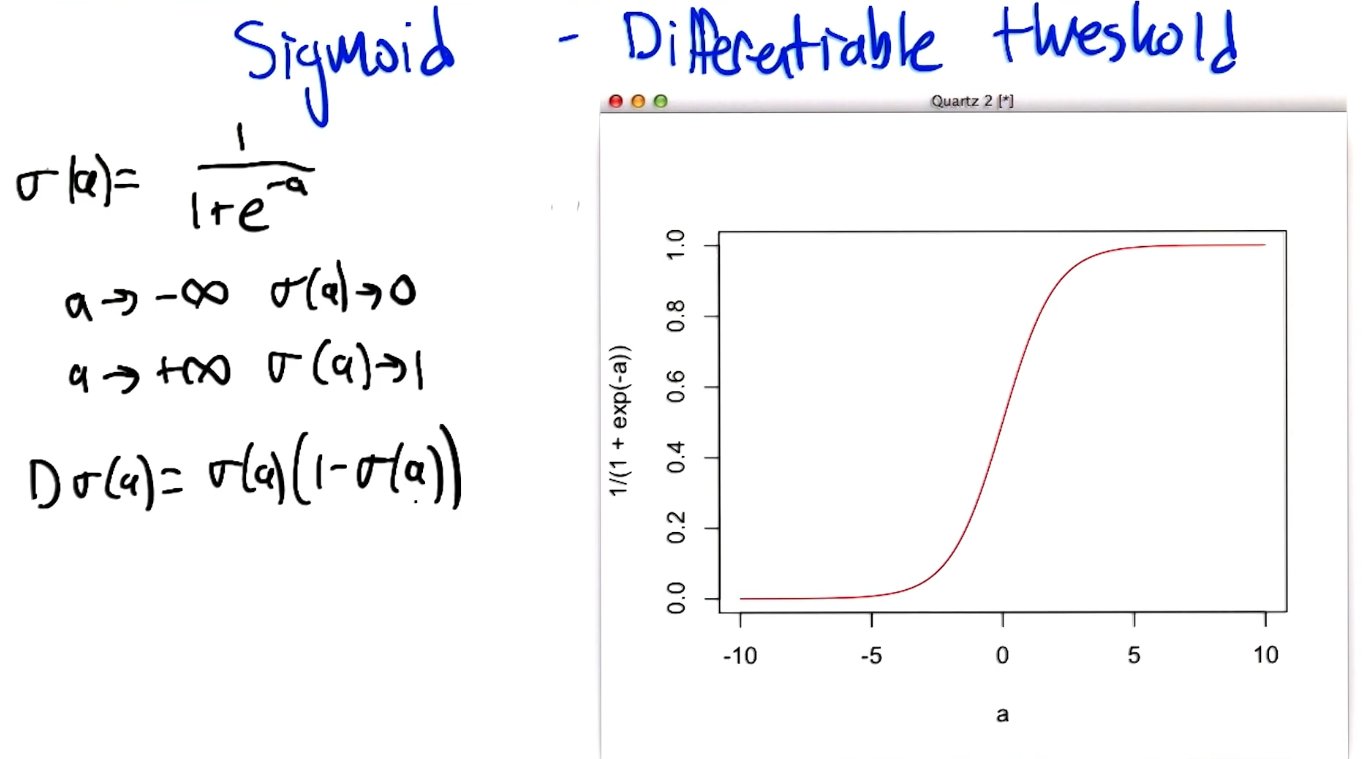 Sigmoid - Differentiable threshold
Quartz 2 [*]
σ(a) = 1/(1+e^-a)
a → -∞ σ(a) → 0
a → +∞ σ(a) → 1
Dσ(a) = σ(a)(1-σ(a))
1/(1 + exp(-a))
1.0
0.8
0.6
0.4
0.2
0.0
-10 -5 0 5 10
a